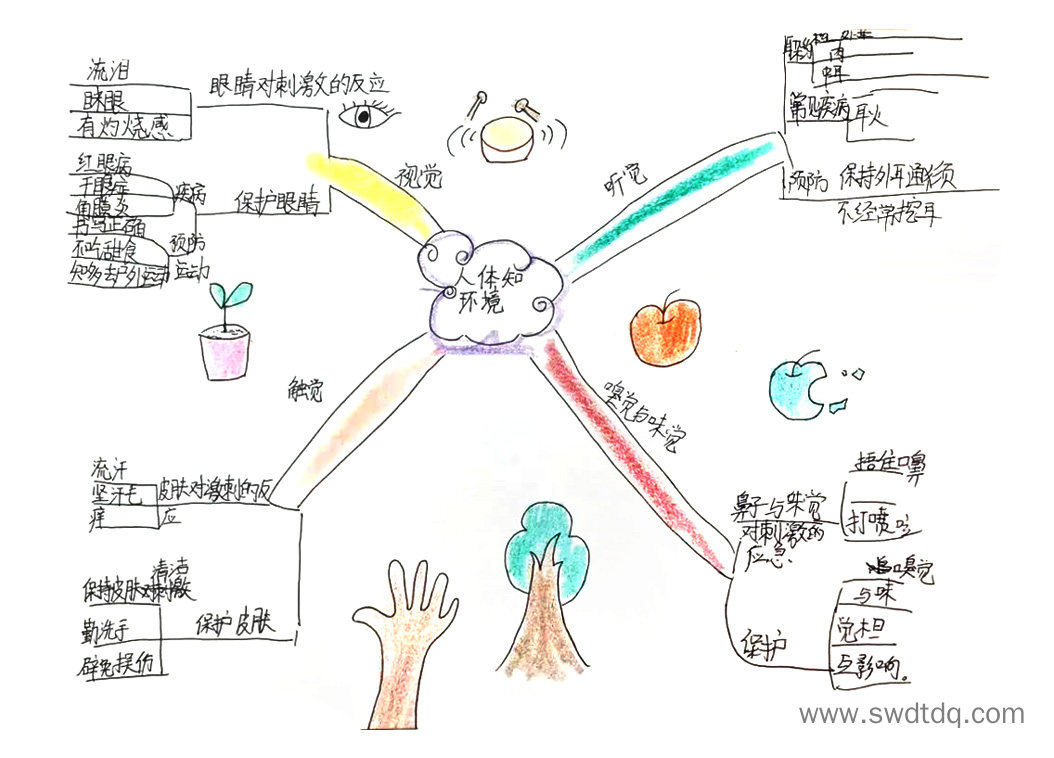 人体知
环境
视觉
眼睛对刺激的反应
流泪
眯眼
有灼烧感
保护眼睛
疾病
红眼病
干眼症
角膜炎
预防
书写正确
不吃甜食
运动
知多去户外运动
听觉
内
中耳
常见疾病
耳火
预防
保持外耳通
不经常挖耳
触觉
皮肤对激刺的反
应
流汗
坚汗毛
痒
保护皮肤
清洁
保持皮肤对刺激
勤洗手
避免损伤
嗅觉与味觉
鼻子与味觉
对刺激的
应急.
捂住嗅鼻
打喷
保护
嗅觉
与味
觉担
与影响。
www.swdtdq.com